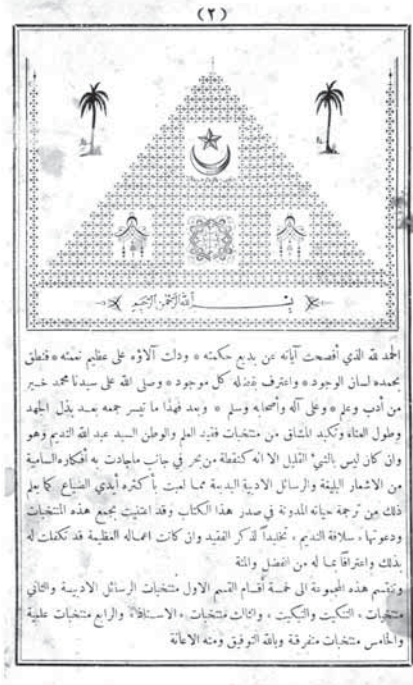 (٢)
بسم الله الرحمن الرحيم
الحمد لله الذي أفصحت آياته عن بديع حكمته * ودلت آلاؤه على عظيم نعمته * فنطق
بحمده لسان الوجود * واعترف بفضله كل موجود * وصلى الله على سيدنا محمد خير
من أدب وعلم * وعلى آله وأصحابه وسلم * وبعد فهذا ما تيسر جمعه بعد بذل الجهد
وطول العناء وتكبد المشاق من منتخبات فقيد العلم والوطن السيد عبد الله النديم وهو
وان كان ليس بالشيء القليل الا انه كنقطة من بحر في جانب ماجادت به أفكاره السامية
من الاشعار البليغة والرسائل الادبية البديعة مما لعبت بأكثره أيدي الضياع كما يعلم
ذلك من ترجمة حياته المدونة في صدر هذا الكتاب وقد اعتنيت بجمع هذه المنتخبات
ودعوتها، سلافة النديم، تخليداً لذكر الفقيد وان كانت اعماله العظيمة قد تكفلت له
بذلك واعترافاً بما له من الفضل والمنة
وتنقسم هذه المجموعة الى خمسة أقسام القسم الاول منتخبات الرسائل الادبية والثاني
منتخبات، التنكيت والتبكيت، والثالث منتخبات، الاستاذ، والرابع منتخبات علمية
والخامس منتخبات متفرقة وبالله التوفيق ومنه الاعانة